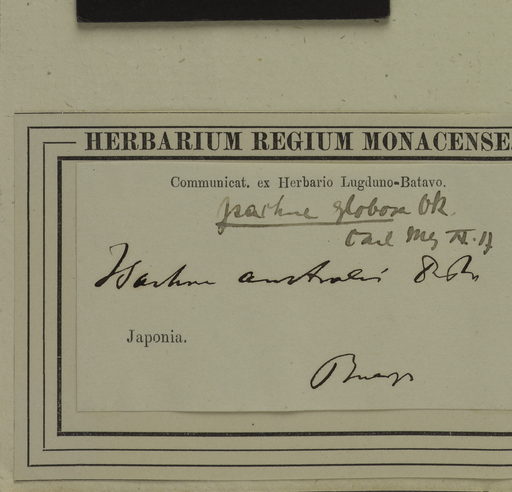 HERBARIUM REGIUM MONACENSE.
Communicat. ex Herbario Lugduno-Batavo.
Isachne globosa Ok.
Isachne australis R Br
Japonia.
Buerger